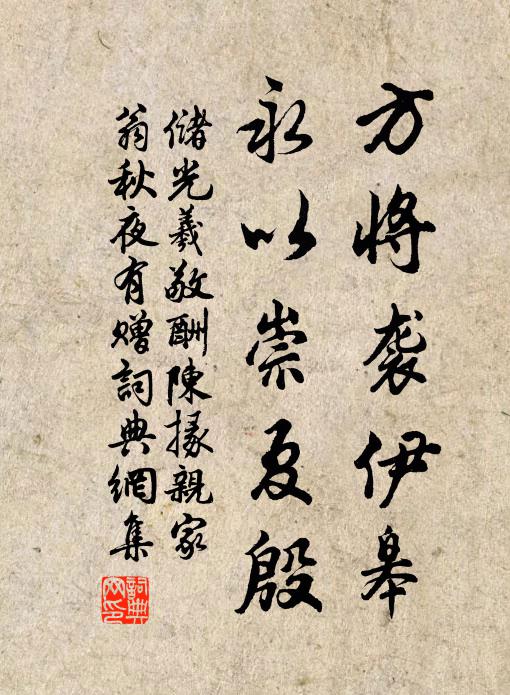 方将袭伊皋
永以崇夏殷
储光羲敬酬陳掾親家
翁秋夜有贈詞典網集
詞典网印